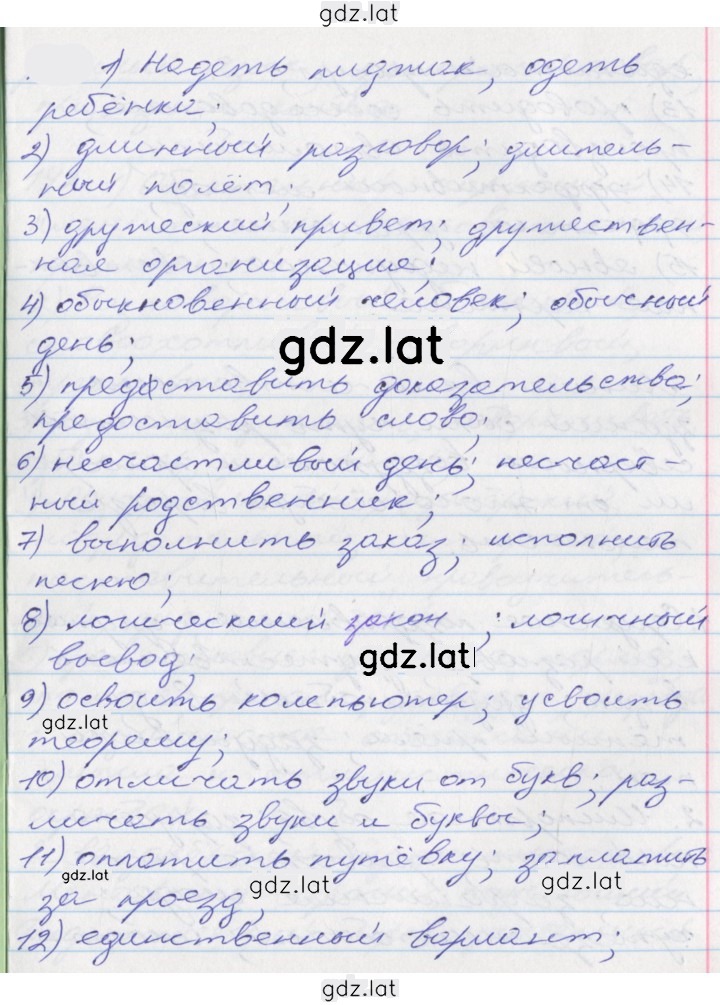 gdz.lat
1) Надеть пиджак, одеть
ребёнка;
2) длинный разговор; длитель-
ный полёт;
3) дружеский привет; дружествен-
ная организация;
4) обыкновенный человек; обычный
день;
gdz.lat
5) предоставить доказательства;
предоставить слово;
6) несчастливый день; несчаст-
ный родственник;
7) выполнить заказ; исполнить
песню;
8) логический закон ; логичный
вывод;
gdz.lat
9) освоить компьютер; усвоить
gdz.lat
теорему;
10) отличать звуки от букв; раз-
личать звуки и буквы;
11) оплатить путёвку; заплатить
gdz.lat gdz.lat gdz.lat
за проезд;
12) единственный вариант;
gdz.lat